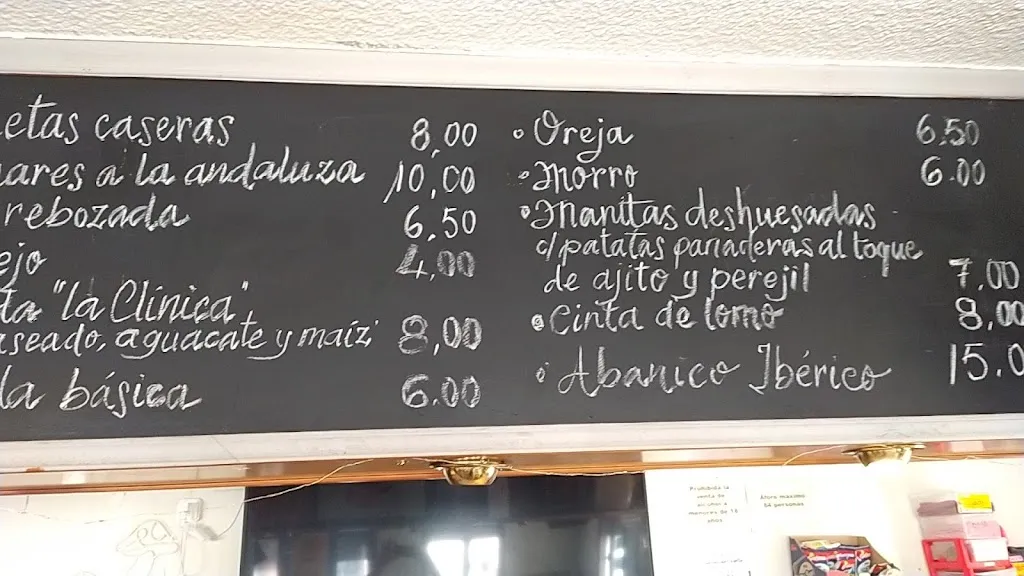 etas caseras 8,00
ares a la andaluza 10,00
rebozada 6,50
ejo 4,00
da "la Clínica"
aseado, aguacate y maíz 8,00
la básica 6.00
• Oreja 6.50
• Morro 6.00
• Manitas deshuesadas
c/patatas panaderas al toque
de ajito y perejil 7,00
• Cinta de lomo 8,00
• Abanico Ibérico 15.0
Prohibida la
venta de
alcohol a
menores de 18
años
Aforo maximo
64 personas